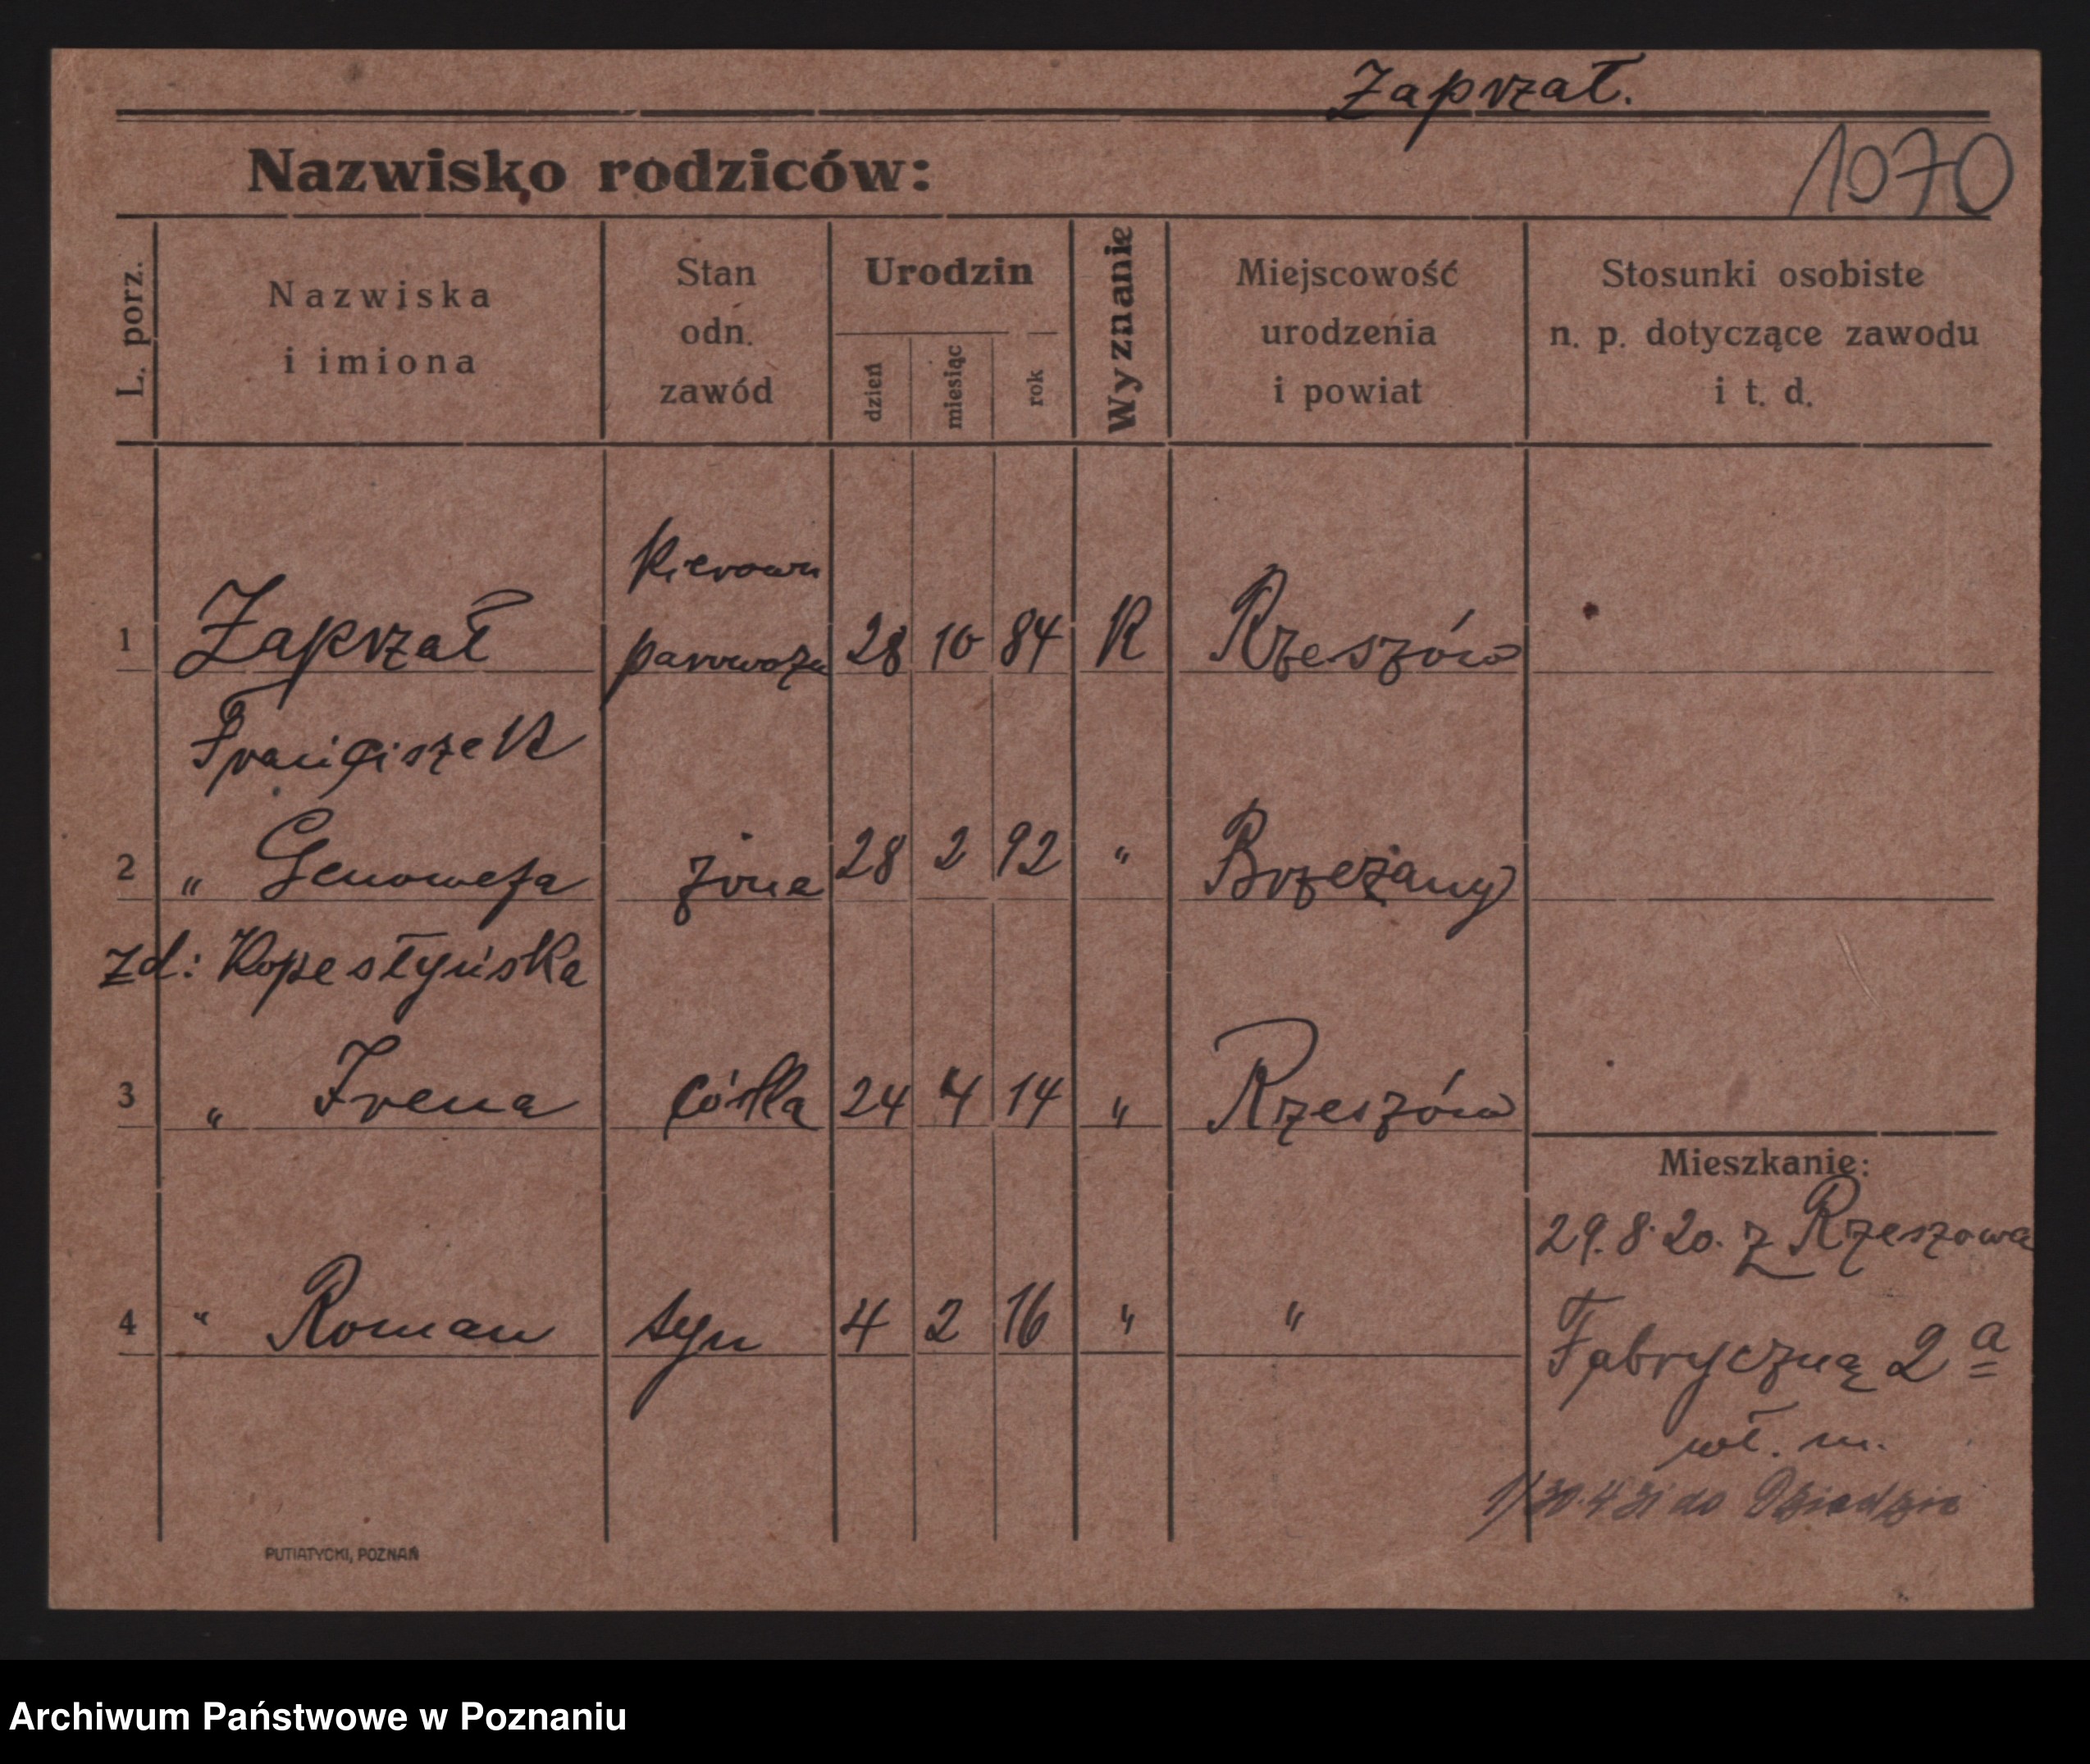 Zaprzał.
Nazwisko rodziców:
1070
L. porz.
Nazwiska
i imiona
Stan
odn.
zawód
Urodzin
dzień
miesiąc
rok
Wyznanie
Miejscowość
urodzenia
i powiat
Stosunki osobiste
n. p. dotyczące zawodu
i t. d.
kierown
1 Zaprzał parowozu 28 10 84 R Rzeszów
Franciszek
2 " Genowefa żona 28 2 92 " Brzeżany
zd: Kopestyńska
3 " Irena córka 24 4 14 " Rzeszów
Mieszkanie:
29.8.20. z Rzeszowa
4 " Roman syn 4 2 16 " "
Fabryczną 2 a
wł. m.
1/30.4 31 do
PUTIATYCKI, POZNAŃ
Archiwum Państwowe w Poznaniu